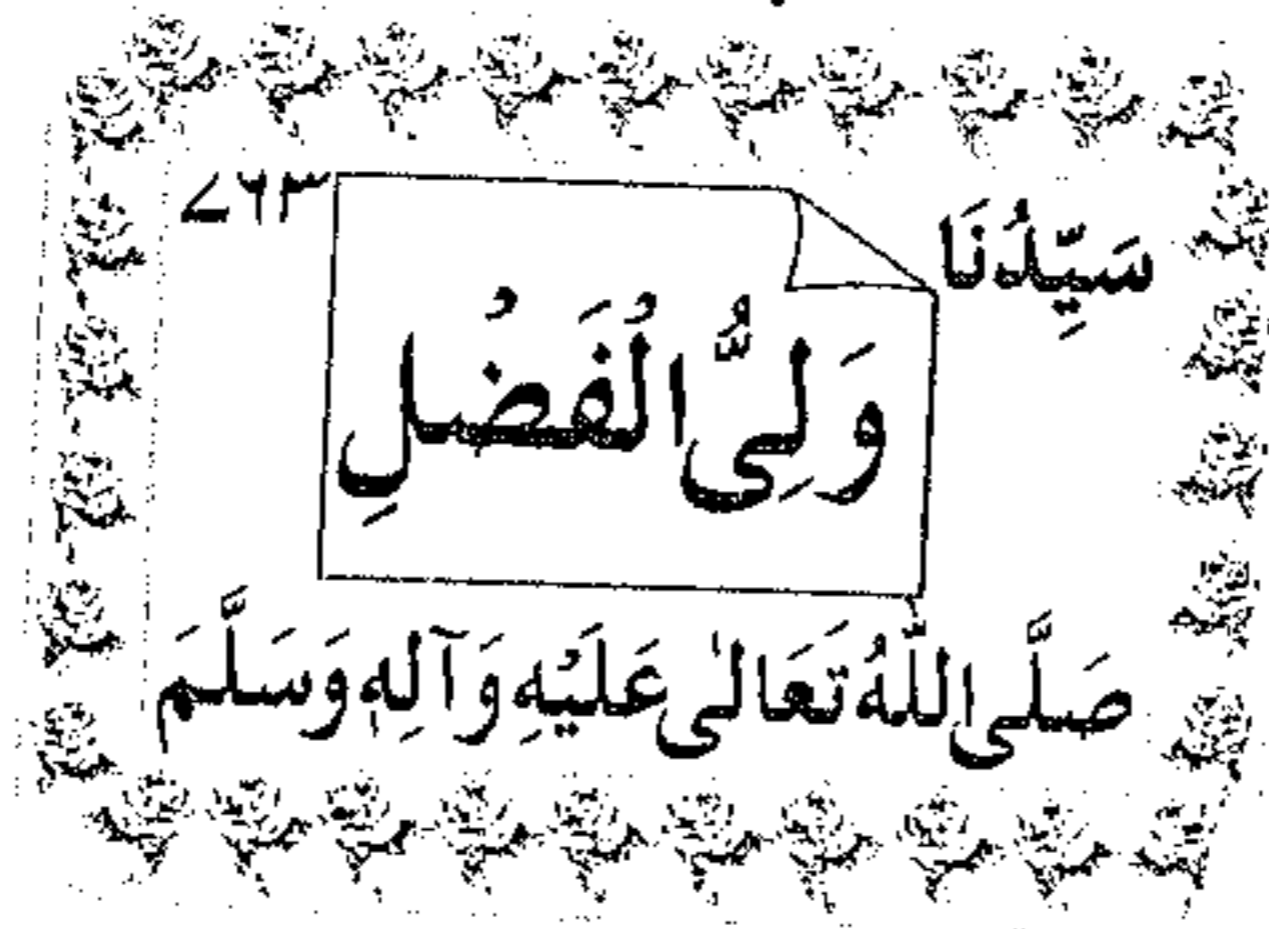 سَيِّدُنَا ۷۲۳
وَلِیُّ الْفَضْلِ
صَلَّى اللّٰهُ تَعَالٰى عَلَيْهِ وَآلِهٖ وَسَلَّمَ